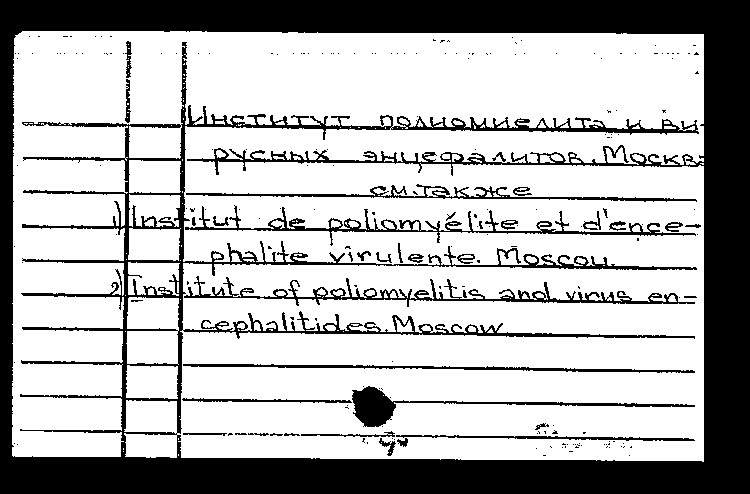 Институт полиомиелита и ви-
русных энцефалитов. Москва
см.также
1) Institut de poliomyélite et d'ence-
phalite virulente. Moscou
2) Institute of poliomyelitis and virus en-
cephalitides. Moscow